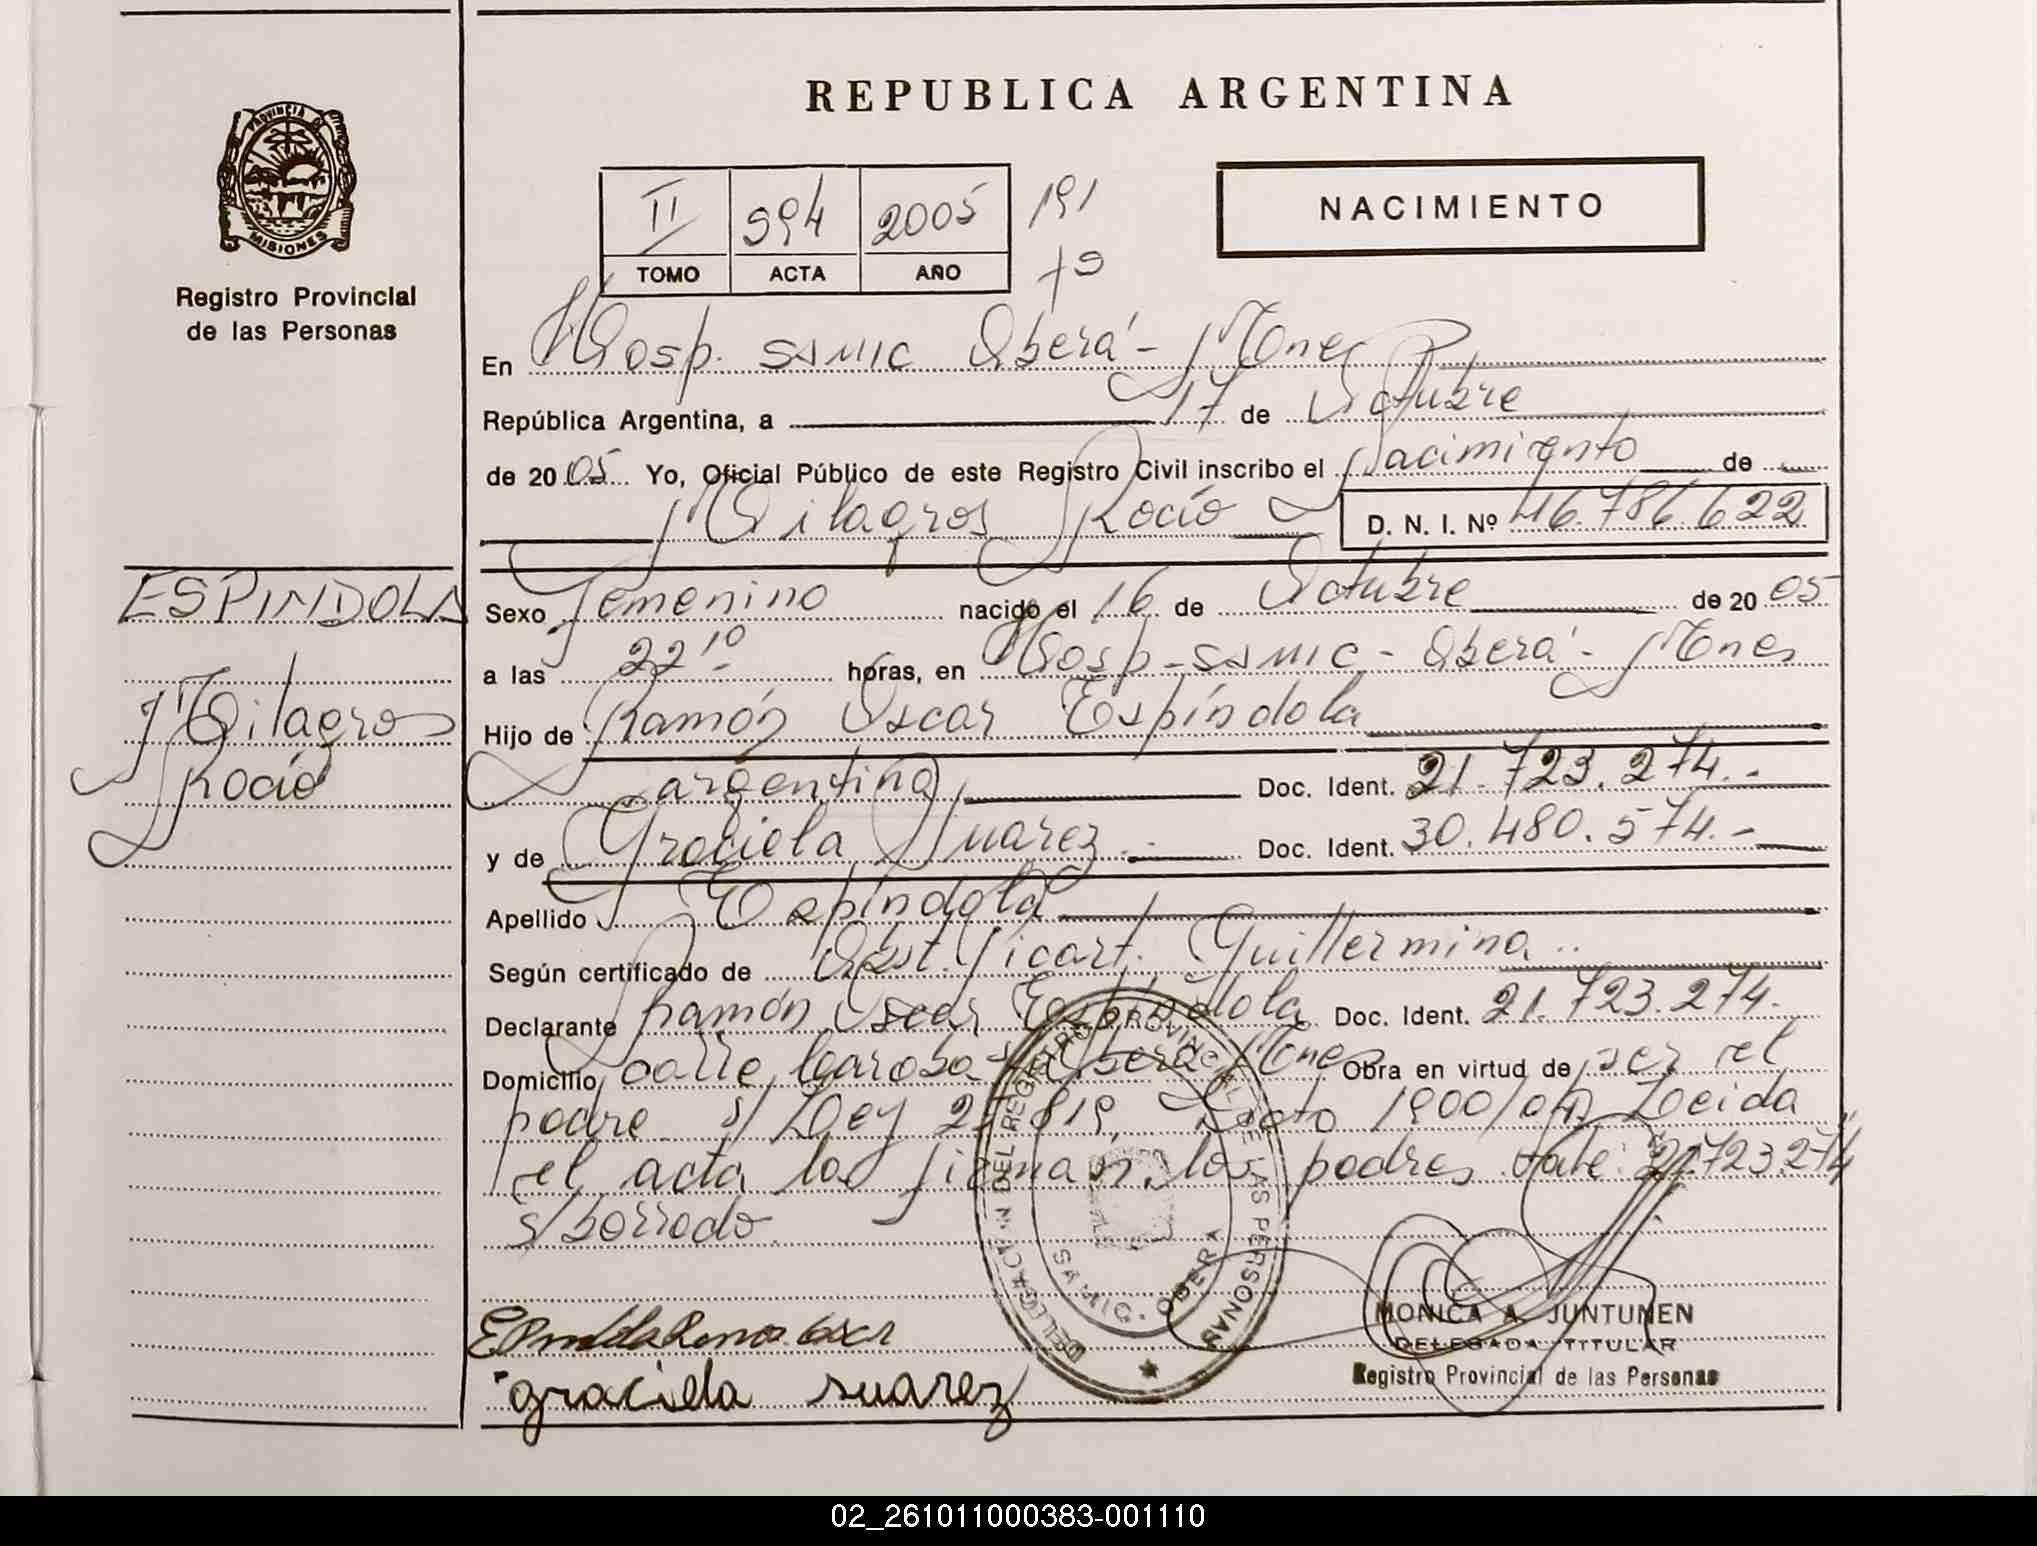 REPUBLICA ARGENTINA
PROVINCIA DE
MISIONES
Registro Provincial
de las Personas
II 994 2005 191
TOMO ACTA AÑO
NACIMIENTO
En Hosp. SAMIC Oberá - Mnes
República Argentina, a 17 de Octubre
de 2005 Yo, Oficial Público de este Registro Civil inscribo el Nacimiento de
Milagros Rocío D. N. I. Nº 46.786.622
ESPINDOLA
Milagros
Rocío
Sexo Femenino nacido el 16 de Octubre de 2005
a las 22 10 horas, en Hosp - SAMIC - Oberá - Mnes
Hijo de Ramón Oscar Espíndola
argentina Doc. Ident. 21.723.274.-
y de Graciela Suarez Doc. Ident. 30.480.574.-
Apellido Espíndola
Según certificado de Obst. Guillermina
Declarante Ramón Oscar Espíndola Doc. Ident. 21.723.274.
Domicilio Oberá Mnes Obra en virtud de ser el
padre s/ Ley Dcto 1900/ Leida
el acta la firman los padres vale: "21.723.274"
s/borrado.
DELEGACION DEL REGISTRO PROVINCIAL DE LAS PERSONAS
SAMIC. OBERA
Graciela Suarez
MONICA A. JUNTUNEN
DELEGADA TITULAR
Registro Provincial de las Personas
02_261011000383-001110